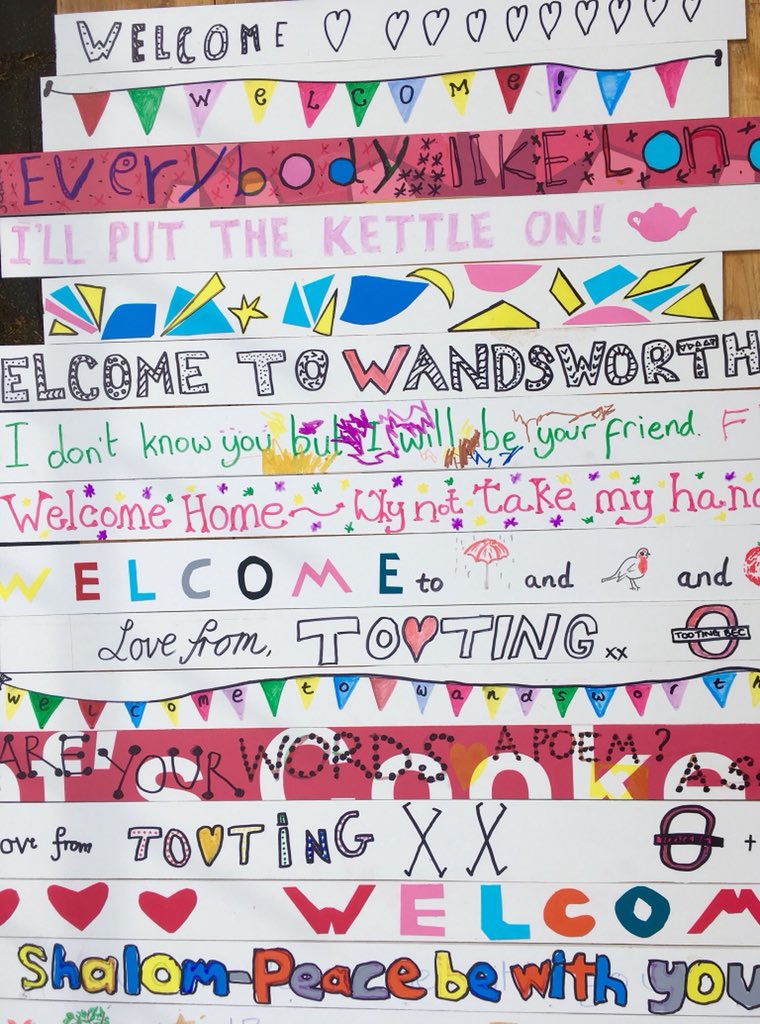 WELCOME
welcome!
Everybody like Lon
I'LL PUT THE KETTLE ON!
ELCOME TO WANDSWORTH
I don't know you but I will be your friend. F
Welcome Home ~ Wy not take my han
WELCOME to and and
Love from, TOTING xx TOOTING BEC
welcome to wandsworth
ARE YOUR WORDS A POEM? AS
ove from TOTING XX +
WELCOM
Shalom-Peace be with you